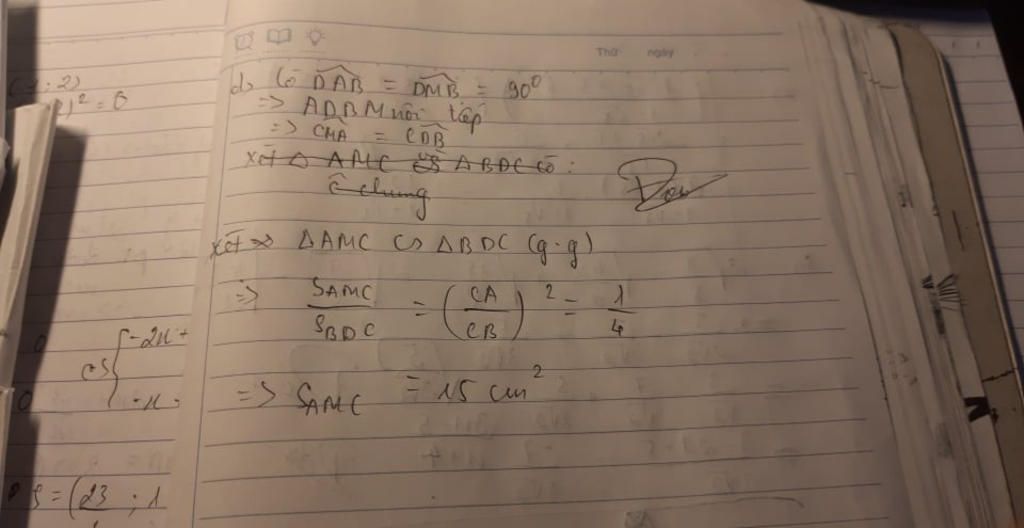 Thứ ngày
d, Có DAB = DMB = 90°
=> ADBM nội tiếp
=> CMA = CDB
xét Δ AMC và Δ BDC có:
C chung
xét => ΔAMC ∽ ΔBDC (g.g)
=> S_AMC / S_BDC = (CA / CB)² = 1/4
=> S_AMC = 15 cm²
2)² = 0
-2x +
-x
S = (23 ; 1